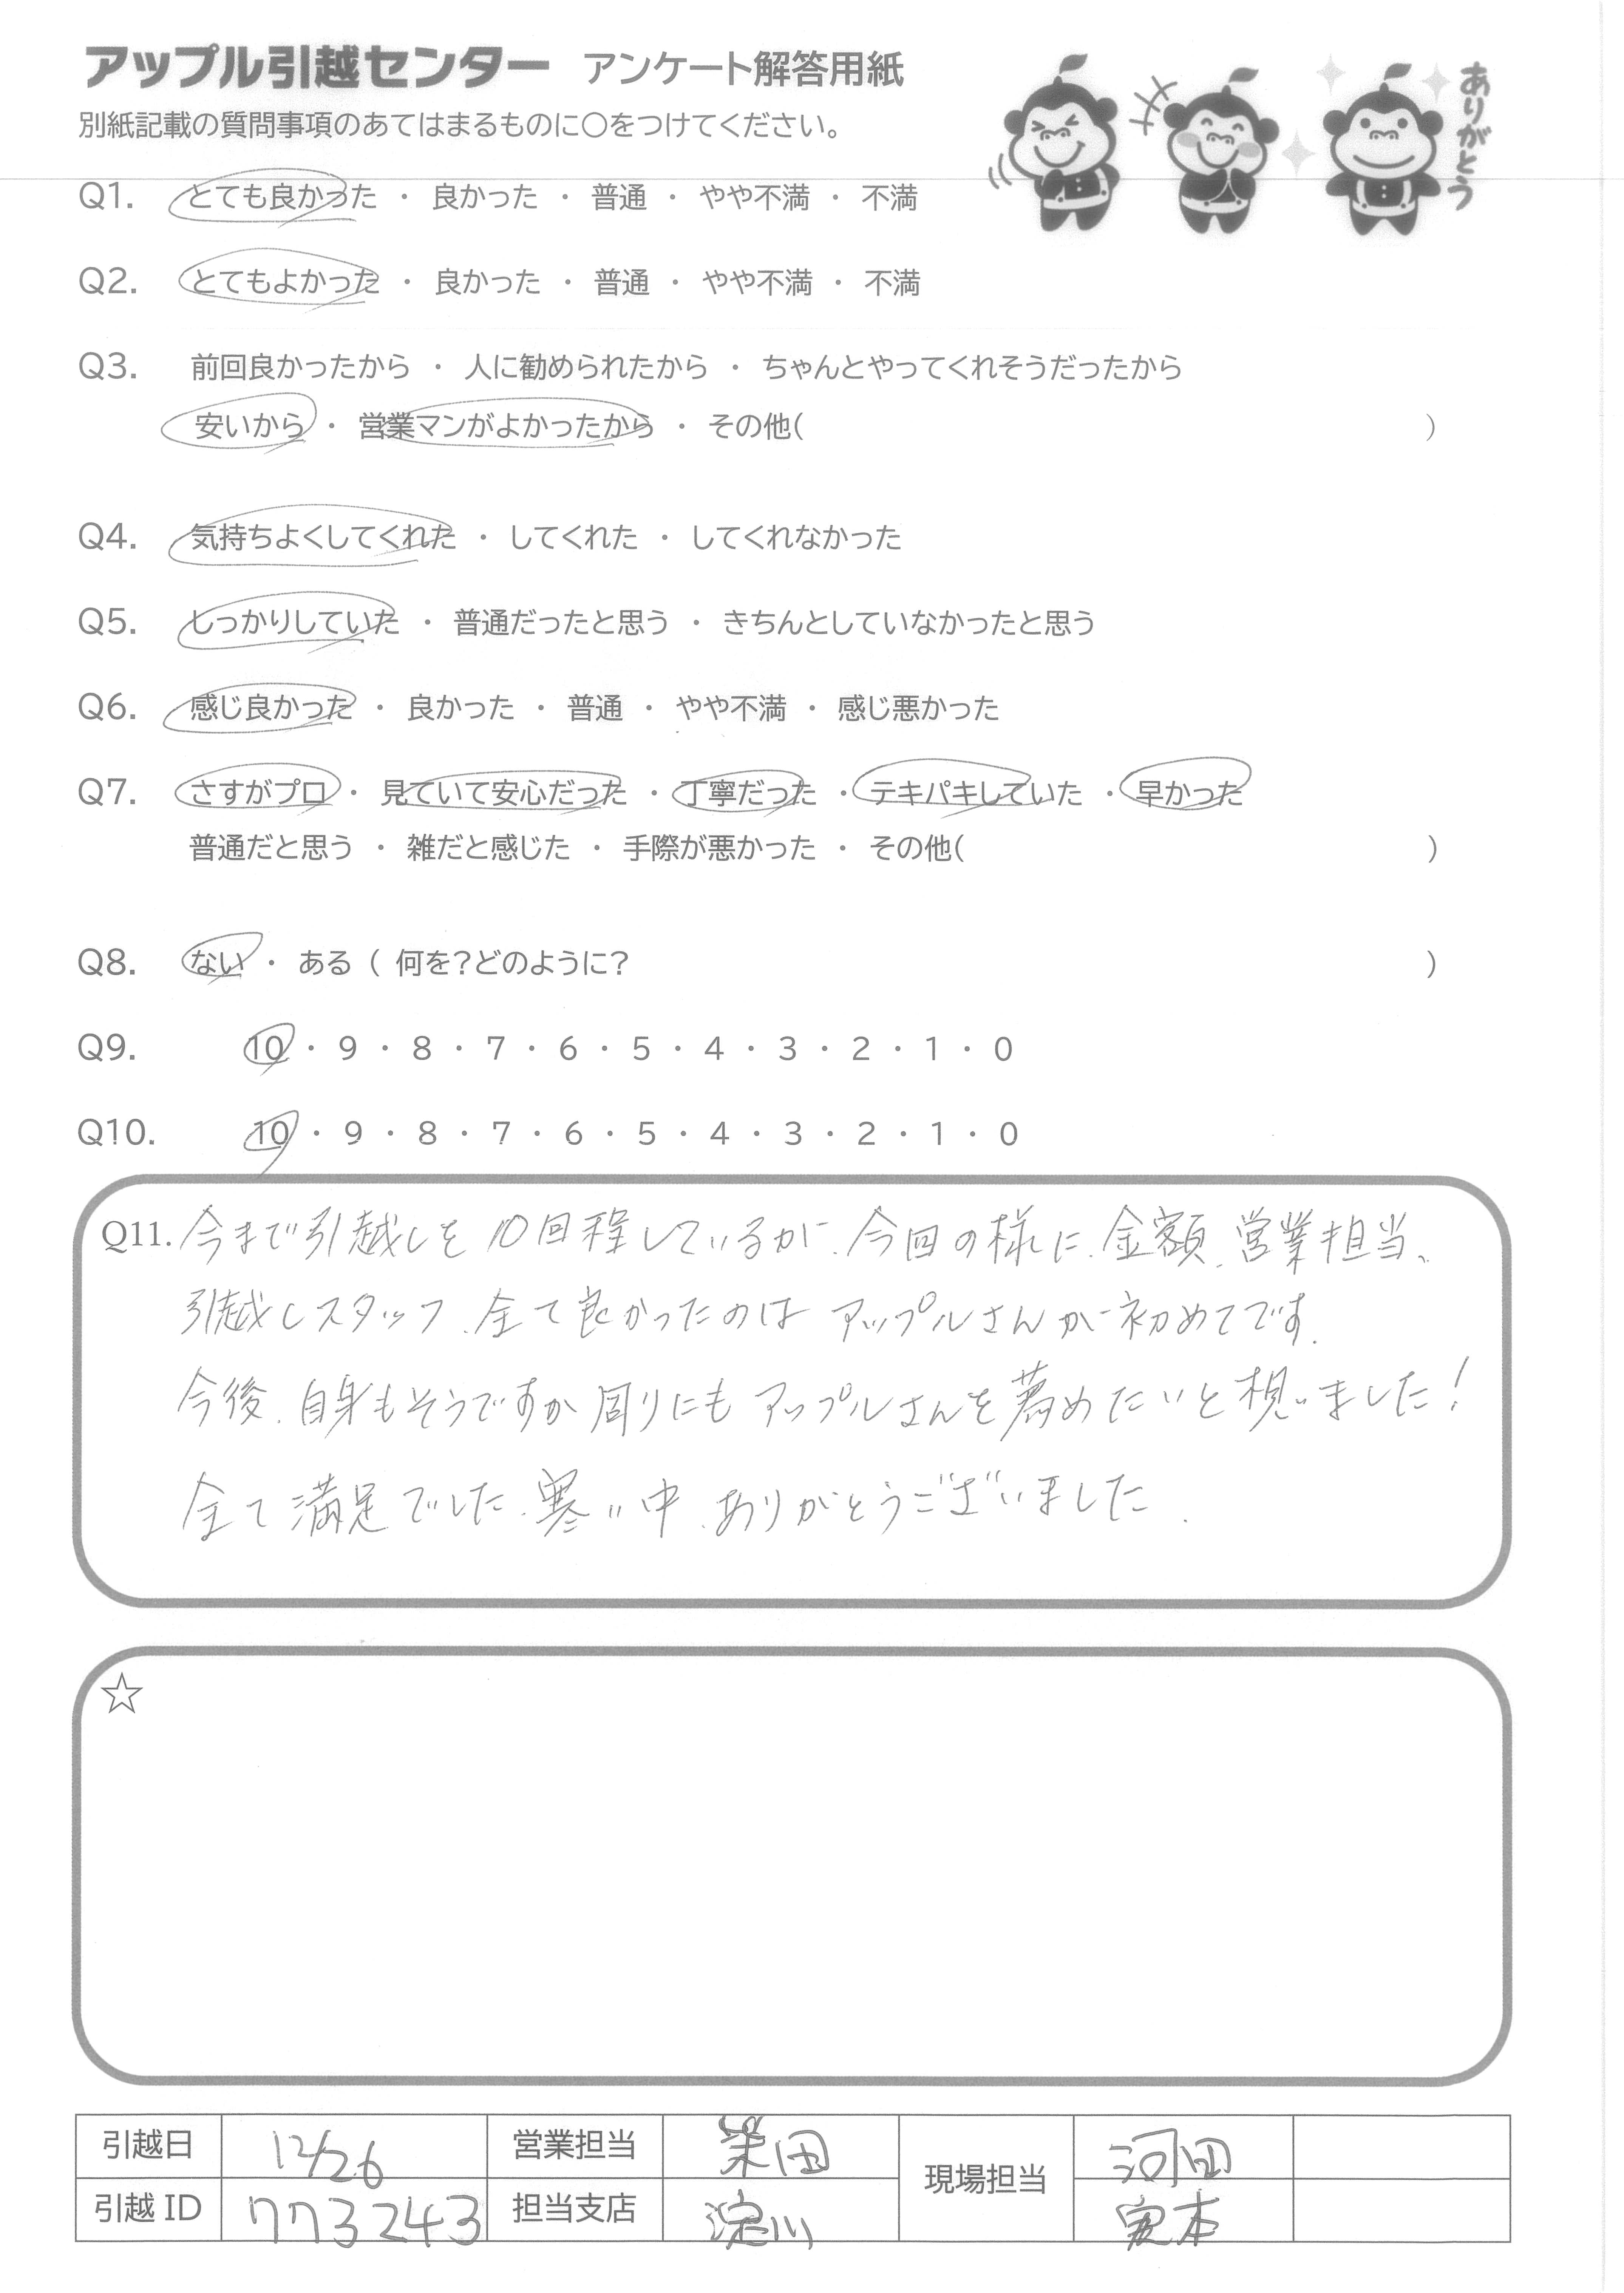 アップル引越センター アンケート解答用紙
別紙記載の質問事項のあてはまるものに○をつけてください。
ありがとう
Q1. とても良かった ・ 良かった ・ 普通 ・ やや不満 ・ 不満
Q2. とてもよかった ・ 良かった ・ 普通 ・ やや不満 ・ 不満
Q3. 前回良かったから ・ 人に勧められたから ・ ちゃんとやってくれそうだったから
安いから ・ 営業マンがよかったから ・ その他( )
Q4. 気持ちよくしてくれた ・ してくれた ・ してくれなかった
Q5. しっかりしていた ・ 普通だったと思う ・ きちんとしていなかったと思う
Q6. 感じ良かった ・ 良かった ・ 普通 ・ やや不満 ・ 感じ悪かった
Q7. さすがプロ ・ 見ていて安心だった ・ 丁寧だった ・ テキパキしていた ・ 早かった
普通だと思う ・ 雑だと感じた ・ 手際が悪かった ・ その他( )
Q8. ない ・ ある ( 何を?どのように? )
Q9. 10 ・ 9 ・ 8 ・ 7 ・ 6 ・ 5 ・ 4 ・ 3 ・ 2 ・ 1 ・ 0
Q10. 10 ・ 9 ・ 8 ・ 7 ・ 6 ・ 5 ・ 4 ・ 3 ・ 2 ・ 1 ・ 0
Q11. 今まで引越しを10回程しているが、今回の様に、金額、営業担当、
引越しスタッフ、全て良かったのは アップルさんが初めてです。
今後、自身もそうですが周りにも アップルさんを薦めたいと想いました!
全て満足でした。寒い中、ありがとうございました。
☆
引越日 12/26 営業担当 柴田 現場担当 河田
引越 ID 773243 担当支店 淀川 本